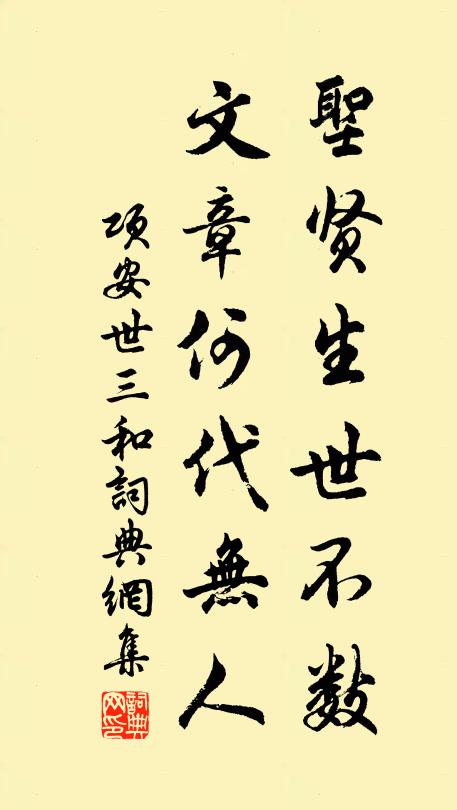 聖贤生世不数
文章何代無人
项安世三和詞典網集
詞典
网印